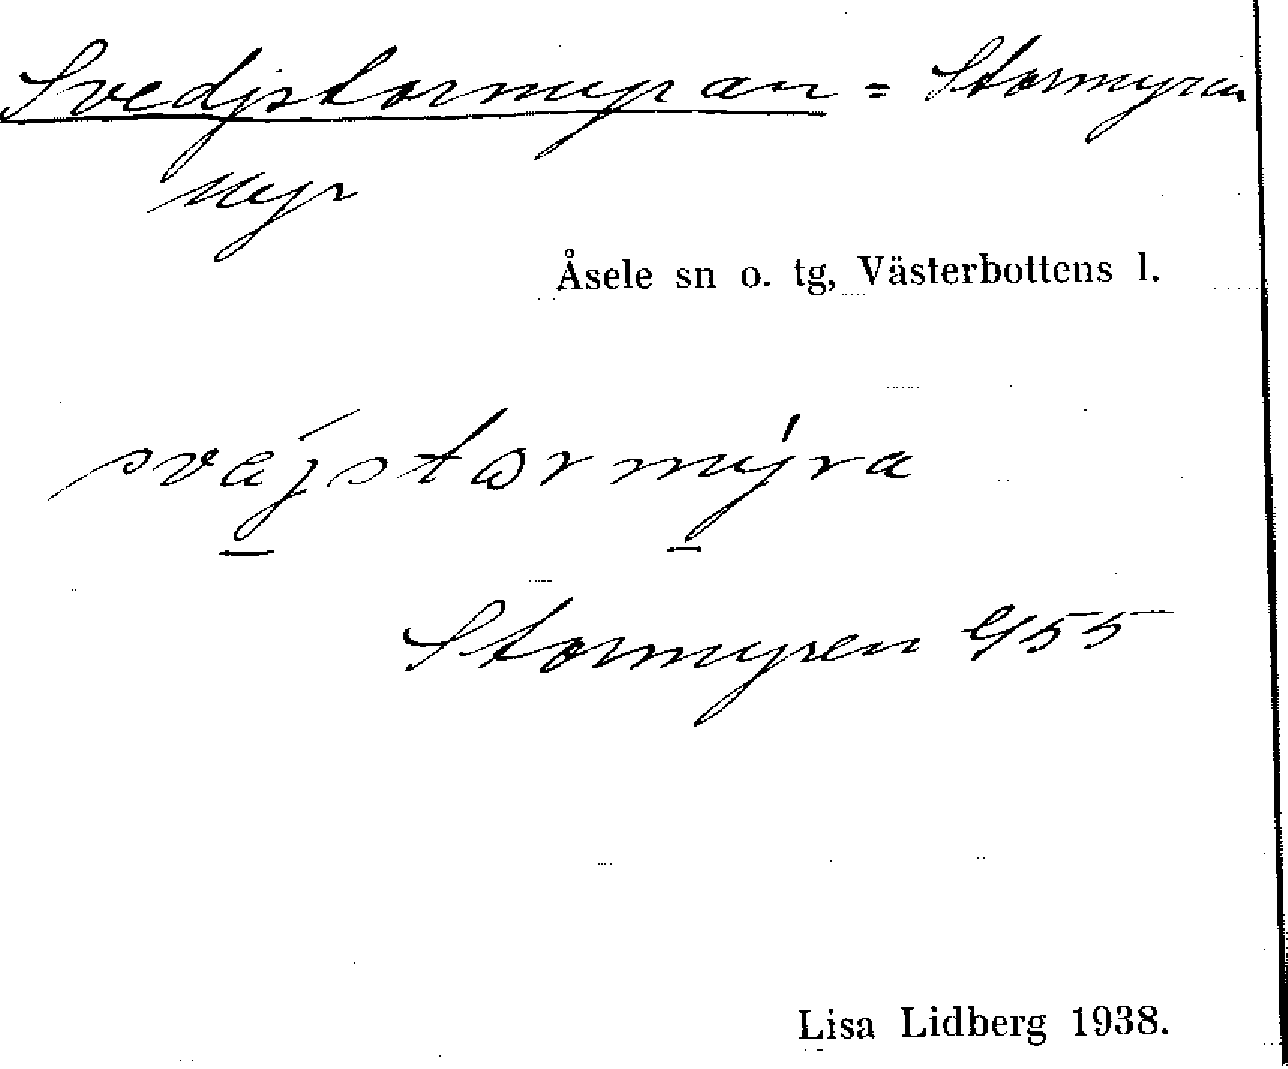 Svedjstormyran = Stormyren
Myr
Åsele sn o. tg, Västerbottens l.
svajstormy̍ra
Stormyren G55
Lisa Lidberg 1938.